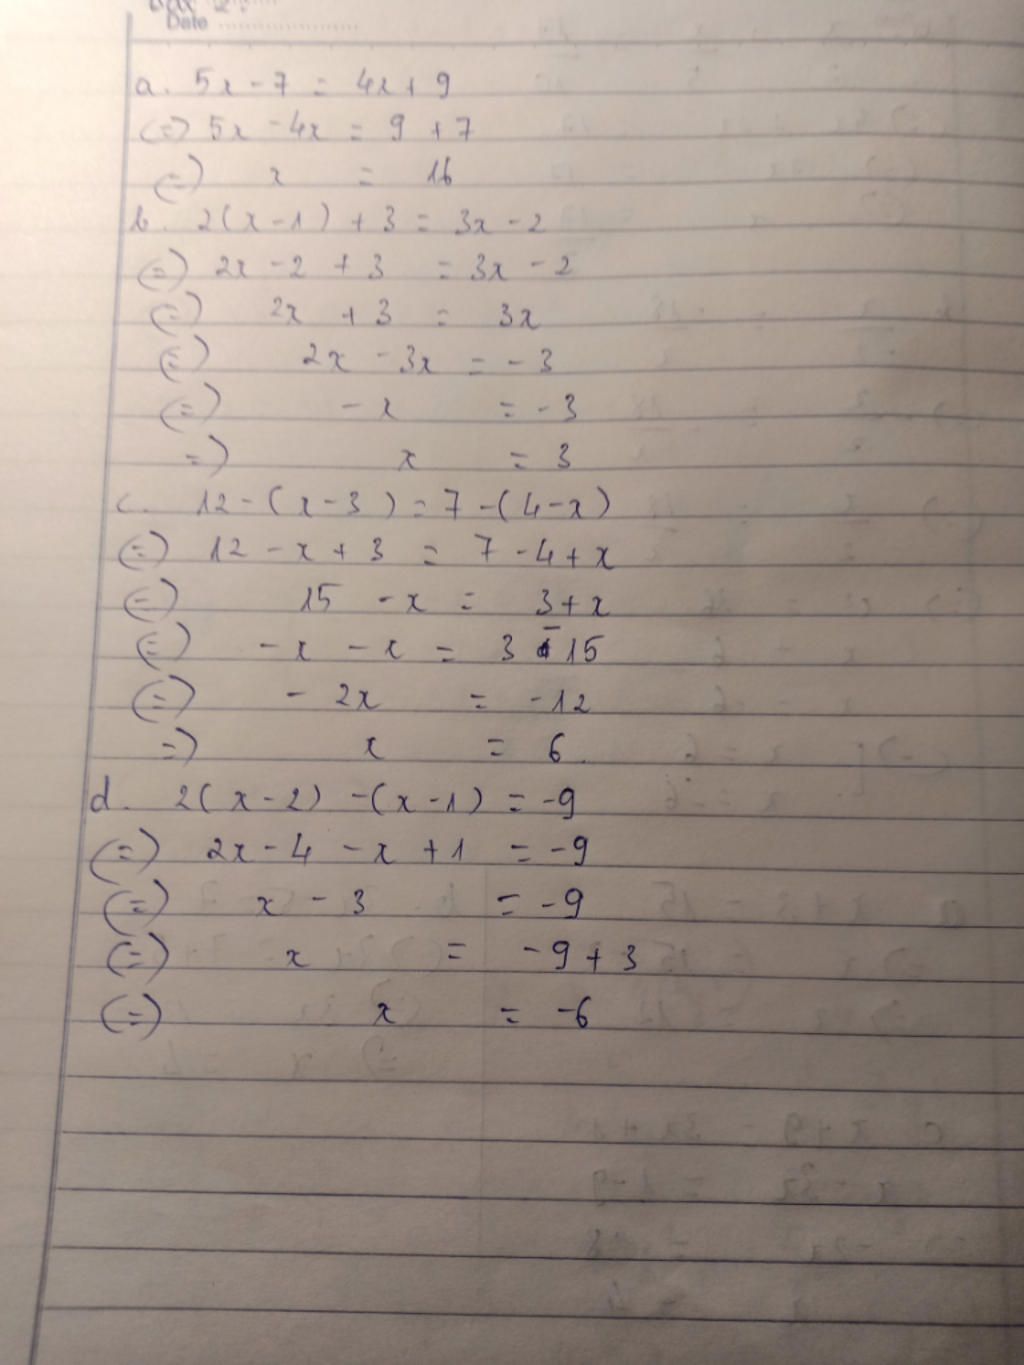 Date
a. 5x - 7 = 4x + 9
(=) 5x - 4x = 9 + 7
(=) x = 16
b. 2(x-1) + 3 = 3x - 2
(=) 2x - 2 + 3 = 3x - 2
(=) 2x + 3 = 3x
(=) 2x - 3x = -3
(=) -x = -3
=) x = 3
c. 12 - (x - 3) = 7 - (4 - x)
(=) 12 - x + 3 = 7 - 4 + x
(=) 15 - x = 3 + x
(=) -x - x = 3 - 15
(=) - 2x = -12
=) x = 6.
d. 2(x-2) - (x-1) = -9
(=) 2x - 4 - x + 1 = -9
(=) x - 3 = -9
(=) x = -9 + 3
(=) x = -6